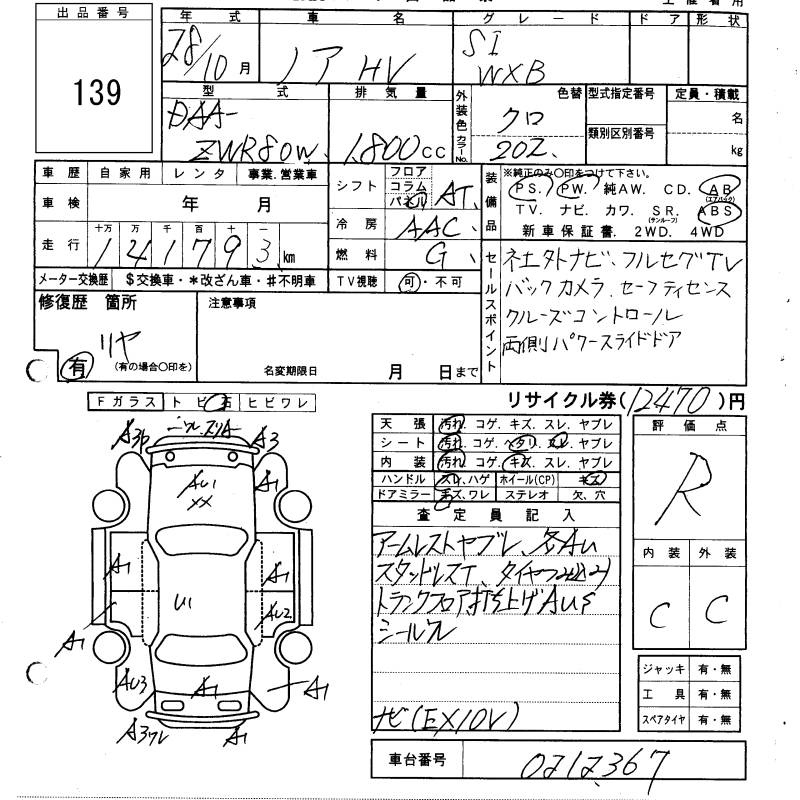 出品番号
139
年式
28/10月
車名
ノア HV
グレード
SI
WXB
ドア
形状
型式
DAA-
ZWR80W
排気量
1,800cc
外装色
カラーNo.
クロ
202
色替
型式指定番号
類別区別番号
定員・積載
名
kg
車歴 自家用 レンタ 事業.営業車
車検 年 月
走行
十万 万 千 百 十 一
141793km
シフト
フロア
コラム
パネル
AT
冷房 AAC
燃料 G
装備品
※純正のみ〇印をつけて下さい。
PS. PW. 純AW. CD. AB
(エアバック)
TV. ナビ. カワ. SR. ABS
(サンルーフ)
新車保証書. 2WD. 4WD
メーター交換歴 $交換車・*改ざん車・#不明車
TV視聴 可・不可
セールスポイント
ネ土外ナビ、フルセグTV
バックカメラ、セーフティセンス
クルーズコントロール
両側パワースライドドア
修復歴 箇所
リヤ
有 (有の場合〇印を)
注意事項
名変期限日 月 日まで
リサイクル券(12470)円
Fガラス トビ石 ヒビワレ
A3
A1
AU1
XX
A1
A1
U1
AU2
A1
AU3
A1
A1
A1
天張 汚れ. コゲ. キズ. スレ. ヤブレ
シート 汚れ. コゲ. ヘタリ. スレ. ヤブレ
内装 汚れ. コゲ. キズ. スレ. ヤブレ
ハンドル スレ, ハゲ ホイール(CP) キズ
ドアミラー キズ, ワレ ステレオ 欠. 穴
査定員記入
アームレストヤブレ、各AU
スタッドレスT、タイヤつみ込み
トランクフロア打ち上げAUS
ナビ(EX10V)
評価点
R
内装 外装
C C
ジャッキ 有・無
工具 有・無
スペアタイヤ 有・無
車台番号 0212367